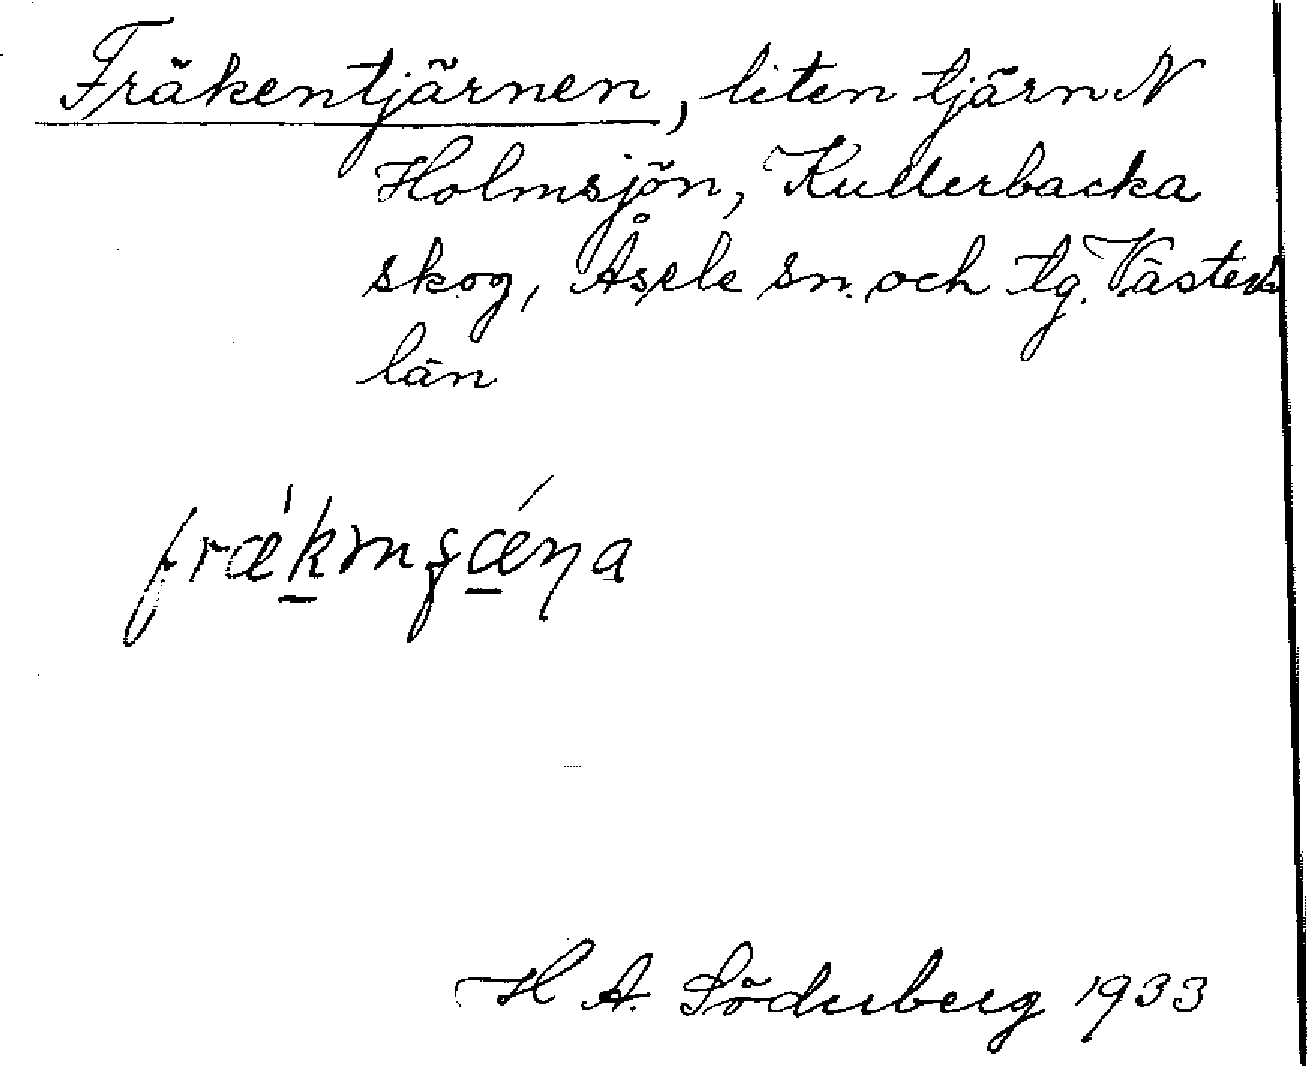 Fräkentjärnen, liten tjärn N
Holmsjön, Kullerbacka
skog, Åsele sn. och tg. Västerb
län
H A. Söderberg 1933